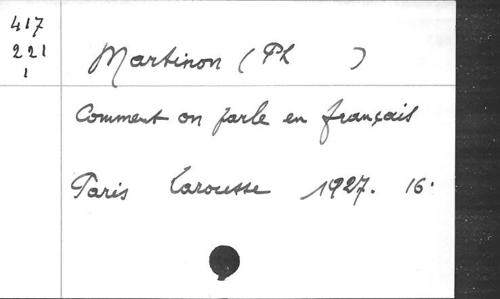 417
221
1
Martinon (Ph )
Comment on parle en français
Paris Larousse 1927. 16.